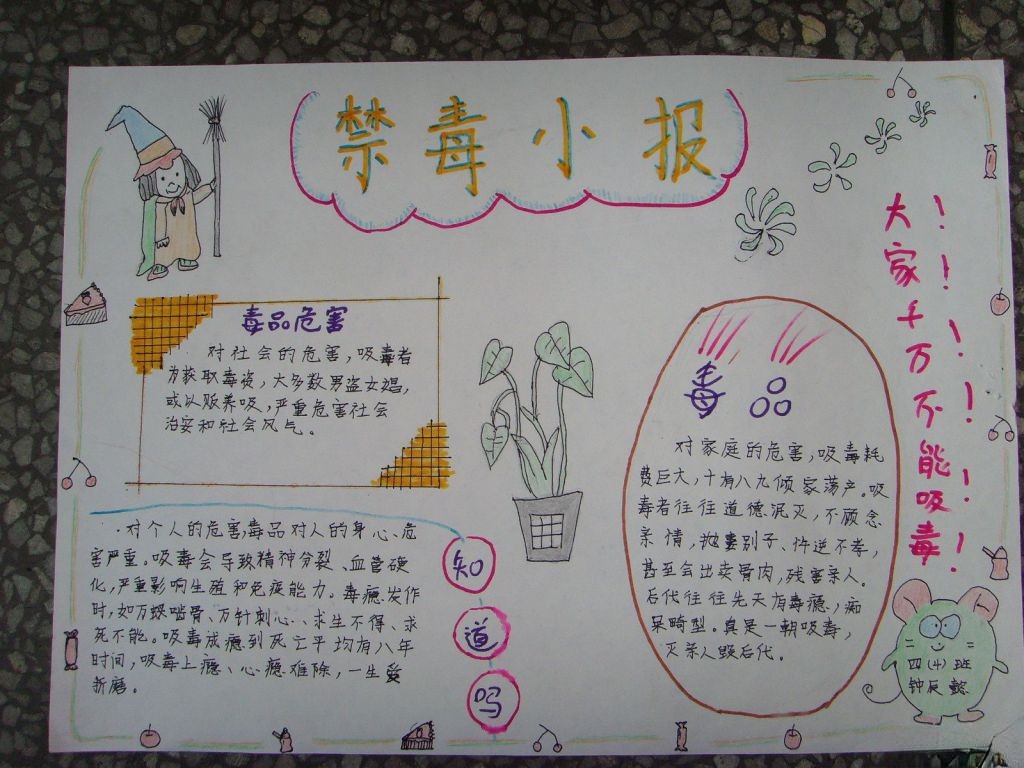 禁毒小报
毒品危害
对社会的危害,吸毒者
为获取毒资,大多数男盗女娼,
或以贩养吸,严重危害社会
治安和社会风气。
对个人的危害毒品对人的身心危
害严重。吸毒会导致精神分裂、血管硬
化,严重影响生殖和免疫能力。毒瘾发作
时,如万蚁啮骨、万针刺心、求生不得、求
死不能。吸毒成瘾到死亡平均有八年
时间,吸毒上瘾、心瘾难除,一生受
折磨。
知
道
吗
毒品
对家庭的危害,吸毒耗
费巨大,十有八九倾家荡产。吸
毒者往往道德泯灭,不顾念
亲情,抛妻别子、忤逆不孝,
甚至会出卖骨肉,残害亲人。
后代往往先天有毒瘾,痴
呆畸型。真是一朝吸毒,
灭亲人毁后代。
大家千万不能吸毒!
! ! ! ! !
四(4)班
钟辰懿